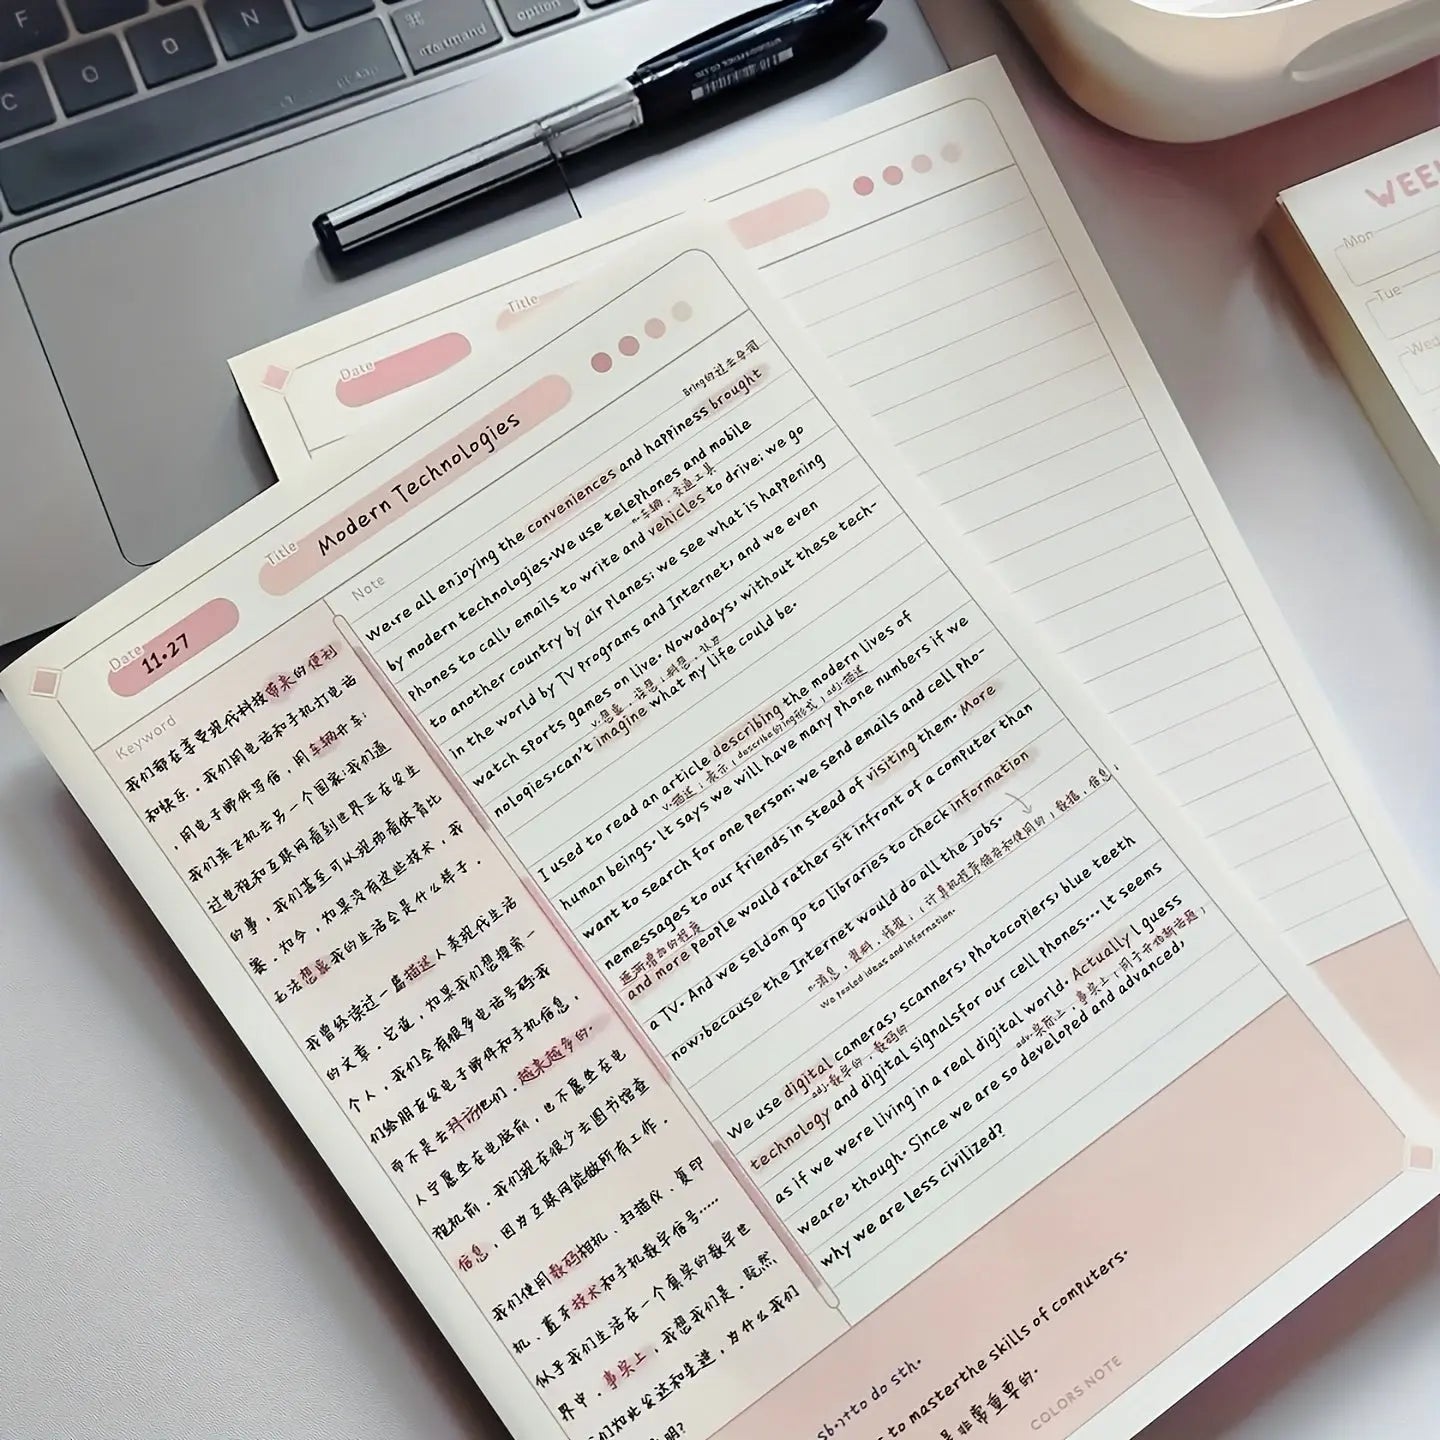 F
O
N
C
O
⌘
command
option
MITSUBISHI PENCIL CO.,LTD
WEE
Mon
Tue
Wed
Date
Title
Date
11.27
Title
Modern Technologies
Keyword
我们都在享受现代科技带来的便利
和快乐。我们用电话和手机打电话
,用电子邮件写信,用车辆开车;
我们乘飞机去另一个国家;我们通
过电视和互联网看到世界正在发生
的事,我们甚至可以现场看体育比
赛。如今,如果没有这些技术,我
无法想象我的生活会是什么样子。
我曾经读过一篇描述人类现代生活
的文章。它说,如果我们想搜索一
个人,我们会有很多电话号码;我
们给朋友发电子邮件和手机信息,
而不是去拜访他们。越来越多的
人宁愿坐在电脑前,也不愿坐在电
视机前。我们现在很少去图书馆查
信息,因为互联网能做所有工作。
我们使用数码相机、扫描仪、复印
机、蓝牙技术和手机数字信号……
似乎我们生活在一个真实的数字世
界中。事实上,我想我们是。既然
我们如此发达和先进,为什么我们
明?
Note
Bring的过去分词
We're all enjoying the conveniences and happiness brought
by modern technologies.We use telephones and mobile
n.车辆,交通工具
phones to call, emails to write and vehicles to drive; we go
to another country by air planes; we see what is happening
in the world by TV programs and Internet, and we even
watch sports games on live. Nowadays, without these tech-
v.想象,设想;料想,认为
nologies,can't imagine what my life could be.
I used to read an article describing the modern lives of
v.描述,表示(describe的ing形式)adj.描述
human beings. It says we will have many phone numbers if we
want to search for one person; we send emails and cell pho-
nemessages to our friends in stead of visiting them. More
逐渐增加的程度
and more people would rather sit infront of a computer than
a TV. And we seldom go to libraries to check information
now,because the Internet would do all the jobs.
n.消息,资料,情报;(计算机程序储存和使用的)数据,信息;
We pooled ideas and information.
We use digital cameras, scanners, photocopiers, blue teeth
adj.数字的,数码的
technology and digital signalsfor our cell phones... It seems
as if we were living in a real digital world. Actually I guess
adv.实际上,事实上(用于开始新话题)
weare, though. Since we are so developed and advanced,
why we are less civilized?
to do sth.
to masterthe skills of computers.
是非常重要的.
COLORS NOTE